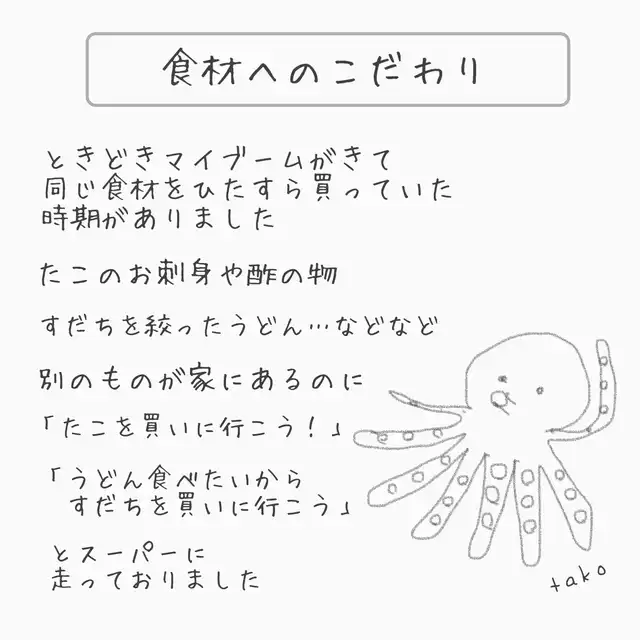 食材へのこだわり
ときどきマイブームがきて
同じ食材をひたすら買っていた
時期がありました
たこのお刺身や酢の物
すだちを絞ったうどん…などなど
別のものが家にあるのに
「たこを買いに行こう！」
「うどん食べたいから
すだちを買いに行こう」
とスーパーに
走っておりました
tako